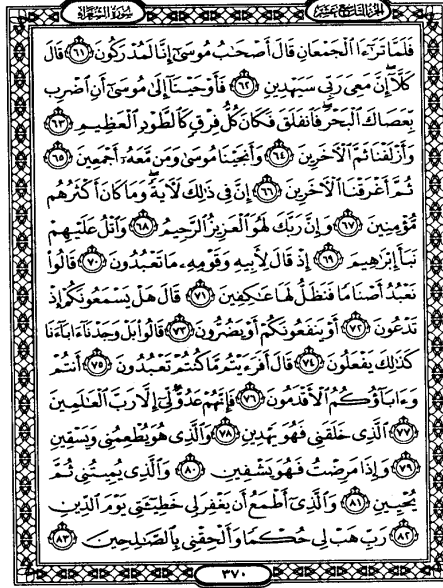 سُورَةُ الشُّعَرَاءِ
الجُزءُ التَّاسِعَ عَشَرَ
فَلَمَّا تَرَٰٓءَا ٱلْجَمْعَانِ قَالَ أَصْحَٰبُ مُوسَىٰٓ إِنَّا لَمُدْرَكُونَ ٦١ قَالَ
كَلَّآ إِنَّ مَعِىَ رَبِّى سَيَهْدِينِ ٦٢ فَأَوْحَيْنَآ إِلَىٰ مُوسَىٰٓ أَنِ ٱضْرِب
بِّعَصَاكَ ٱلْبَحْرَ فَٱنفَلَقَ فَكَانَ كُلُّ فِرْقٍ كَٱلطَّوْدِ ٱلْعَظِيمِ ٦٣
وَأَزْلَفْنَا ثَمَّ ٱلْءَاخَرِينَ ٦٤ وَأَنجَيْنَا مُوسَىٰ وَمَن مَّعَهُۥٓ أَجْمَعِينَ ٦٥
ثُمَّ أَغْرَقْنَا ٱلْءَاخَرِينَ ٦٦ إِنَّ فِى ذَٰلِكَ لَءَايَةً وَمَا كَانَ أَكْثَرُهُم
مُّؤْمِنِينَ ٦٧ وَإِنَّ رَبَّكَ لَهُوَ ٱلْعَزِيزُ ٱلرَّحِيمُ ٦٨ وَٱتْلُ عَلَيْهِمْ
نَبَأَ إِبْرَٰهِيمَ ٦٩ إِذْ قَالَ لِأَبِيهِ وَقَوْمِهِۦ مَا تَعْبُدُونَ ٧٠ قَالُوا۟
نَعْبُدُ أَصْنَامًا فَنَظَلُّ لَهَا عَٰكِفِينَ ٧١ قَالَ هَلْ يَسْمَعُونَكُمْ إِذْ
تَدْعُونَ ٧٢ أَوْ يَنفَعُونَكُمْ أَوْ يَضُرُّونَ ٧٣ قَالُوا۟ بَلْ وَجَدْنَآ ءَابَآءَنَا
كَذَٰلِكَ يَفْعَلُونَ ٧٤ قَالَ أَفَرَءَيْتُم مَّا كُنتُمْ تَعْبُدُونَ ٧٥ أَنتُمْ
وَءَابَآؤُكُمُ ٱلْأَقْدَمُونَ ٧٦ فَإِنَّهُمْ عَدُوٌّ لِّىٓ إِلَّا رَبَّ ٱلْعَٰلَمِينَ
٧٧ ٱلَّذِى خَلَقَنِى فَهُوَ يَهْدِينِ ٧٨ وَٱلَّذِى هُوَ يُطْعِمُنِى وَيَسْقِينِ
٧٩ وَإِذَا مَرِضْتُ فَهُوَ يَشْفِينِ ٨٠ وَٱلَّذِى يُمِيتُنِى ثُمَّ
يُحْيِينِ ٨١ وَٱلَّذِىٓ أَطْمَعُ أَن يَغْفِرَ لِى خَطِيٓـَٔتِى يَوْمَ ٱلدِّينِ
٨٢ رَبِّ هَبْ لِى حُكْمًا وَأَلْحِقْنِى بِٱلصَّٰلِحِينَ ٨٣
٣٧٠